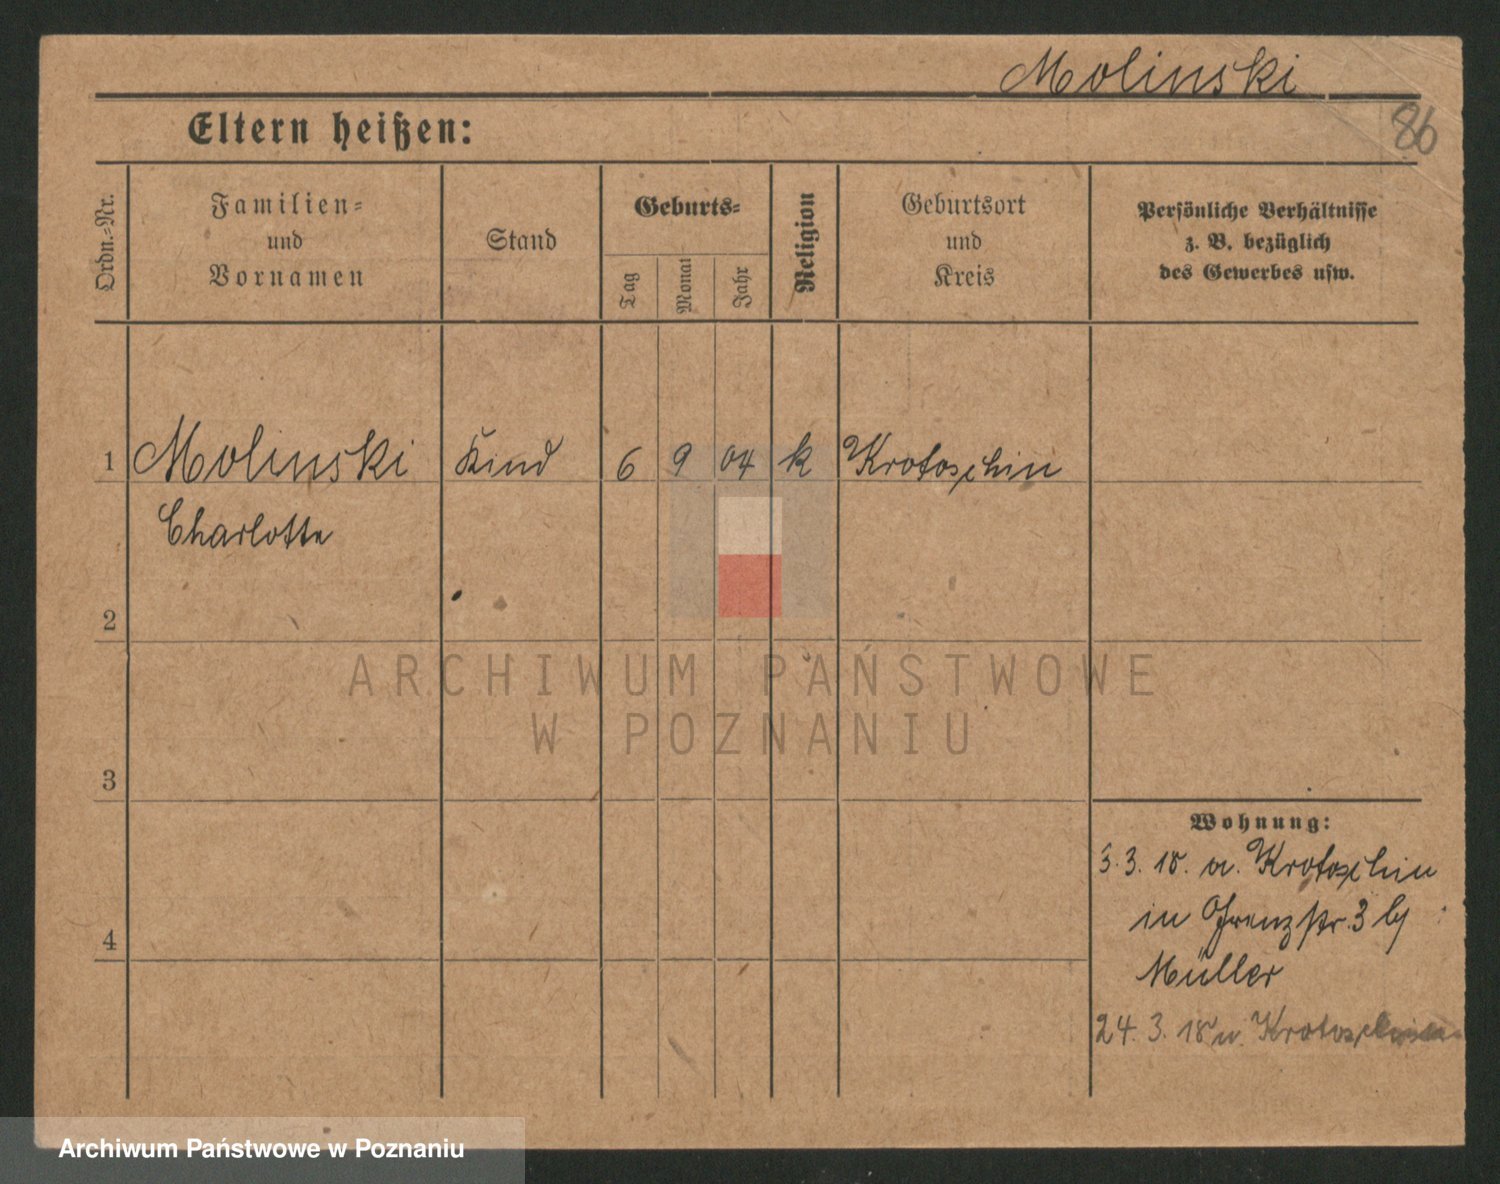 Molinski
86
Eltern heißen:
Ordn.-Nr.
Familien-
und
Vornamen
Stand
Geburts-
Tag
Monat
Jahr
Religion
Geburtsort
und
Kreis
Persönliche Verhältnisse
z. B. bezüglich
des Gewerbes usw.
1 Molinski Kind 6 9 04 k Krotoschin
Charlotte
2
ARCHIWUM PAŃSTWOWE
W POZNANIU
3
Wohnung:
3. 18. a. Krotoschin
4
in Grenzstr. 3 b/
Müller
24. 3. 18 n. Krotoschin
Archiwum Państwowe w Poznaniu